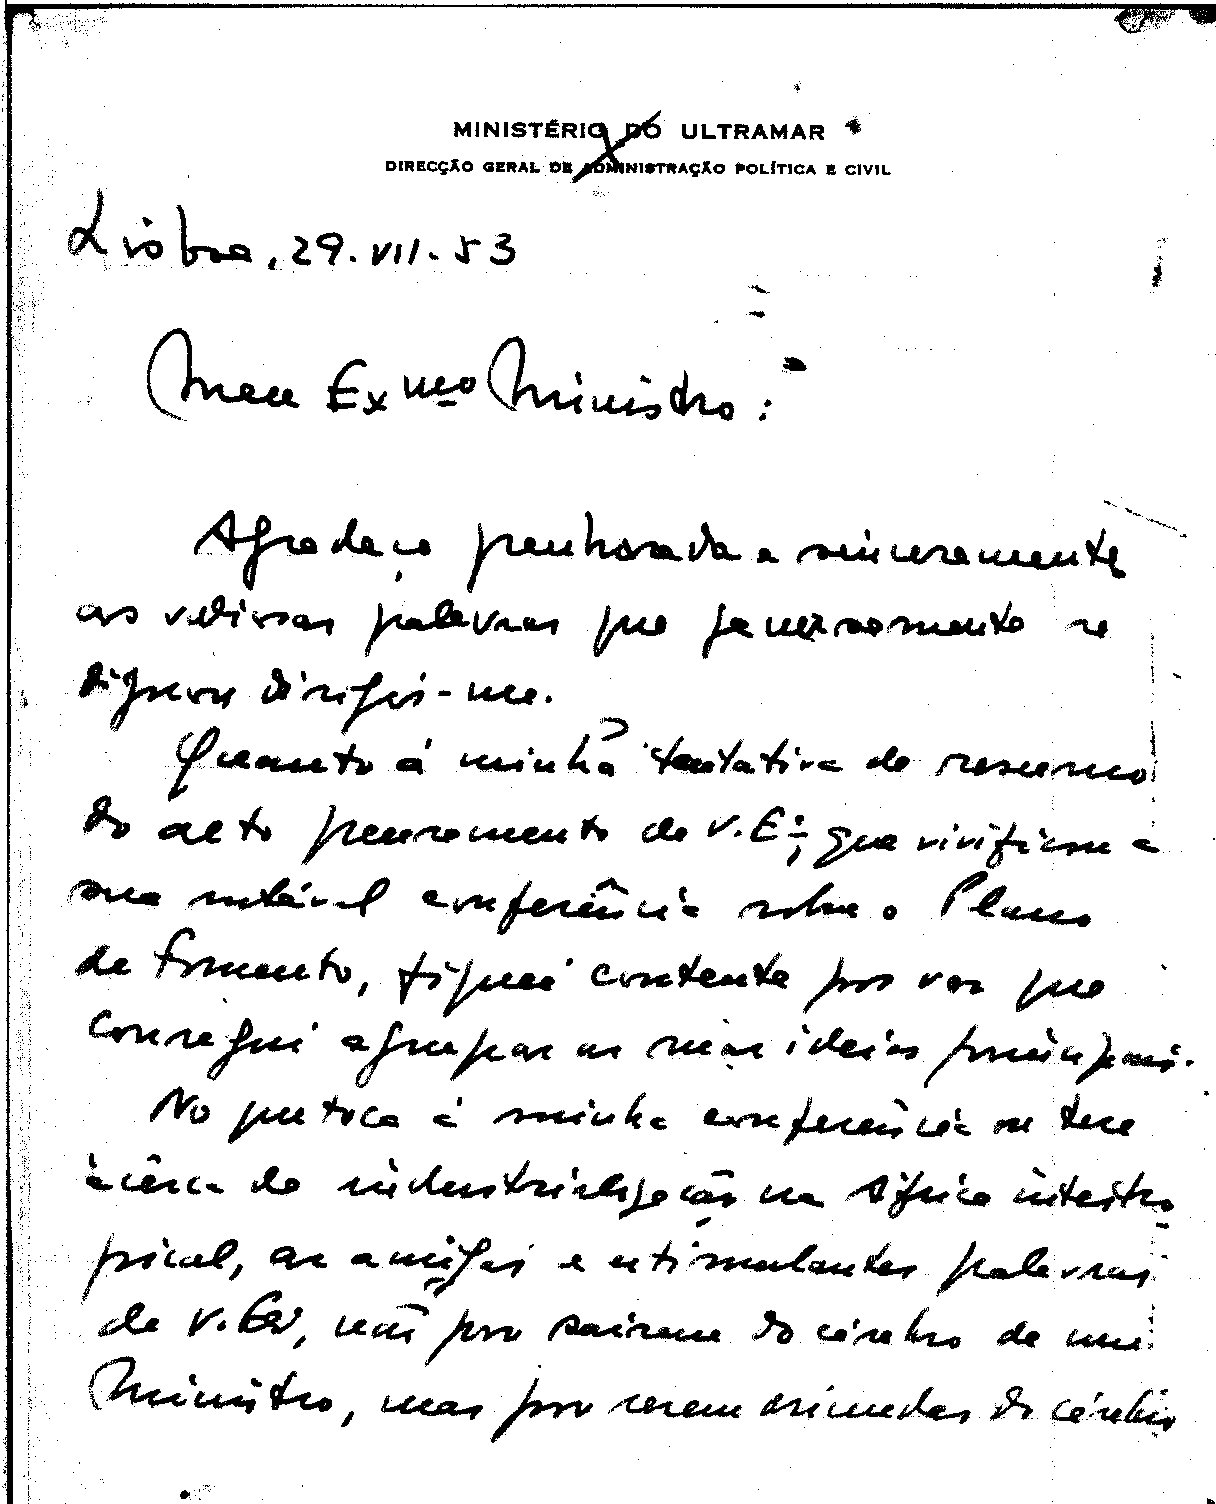 MINISTÉRIO DO ULTRAMAR
DIRECÇÃO GERAL DE ADMINISTRAÇÃO POLÍTICA E CIVIL
Lisboa, 29.VII.53
Meu Exmo Ministro:
Agradeço penhorada e sinceramente
as valiosas palavras que generosamente se
dignou dirigir-me.
Quanto à minha tentativa de resumo
do alto pensamento de V. Ex.ª, que vivificou a
sua notável conferência sobre o Plano
de Fomento, fiquei contente por ver que
consegui agrupar as suas ideias principais.
No que toca à minha conferência
àcerca da industrialização na África intertro-
pical, as amigas e estimulantes palavras
de V. Exª, não por sairem do cérebro de um
Ministro, mas por serem do cérebro